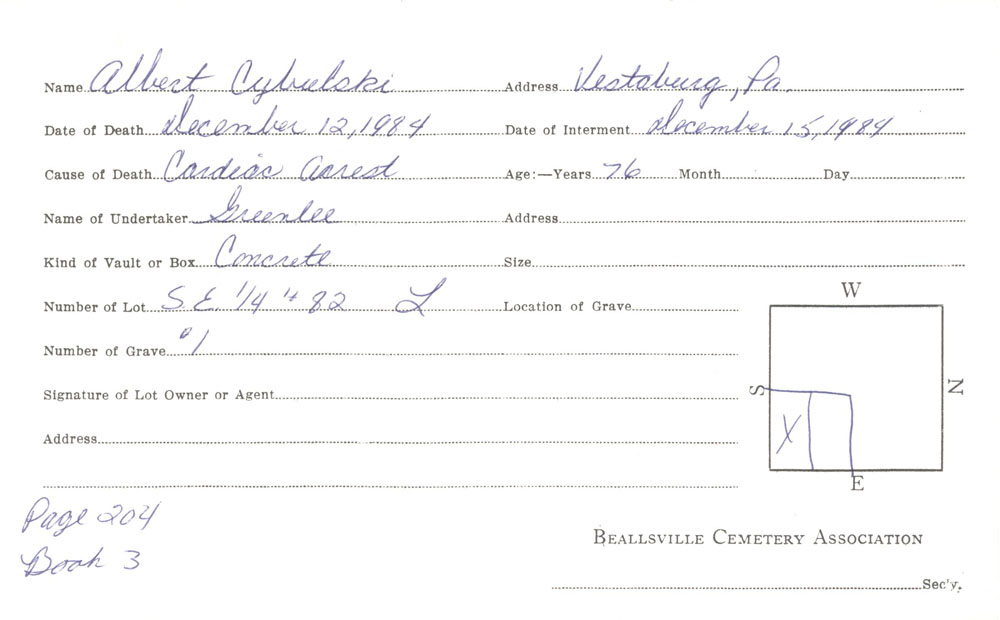 Name Albert Cybulski Address Vestaburg, Pa.
Date of Death December 12, 1984 Date of Interment December 15, 1984
Cause of Death Cardiac Arrest Age:—Years 76 Month Day
Name of Undertaker Greenlee Address
Kind of Vault or Box Concrete Size
Number of Lot S.E. 1/4 # 82 L Location of Grave
W
Number of Grave #1
S N
Signature of Lot Owner or Agent
X
Address
E
Page 204
Book 3
Beallsville Cemetery Association
Sec'y.